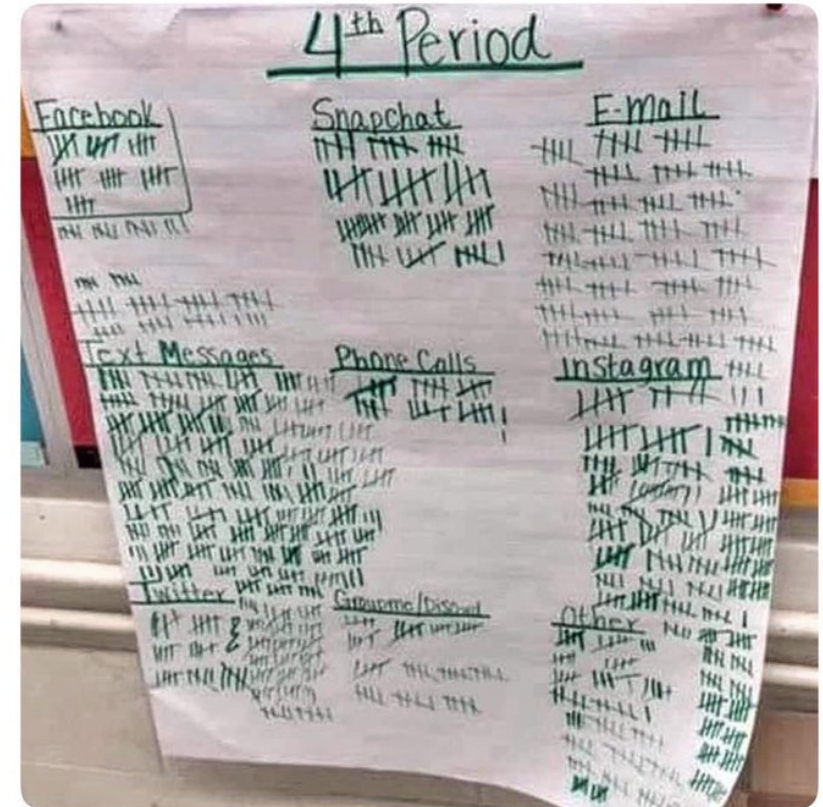 4th Period
Facebook
Snapchat
E-Mail
Text Messages
Phone Calls
Instagram
Twitter
Groupme/Discord
Other